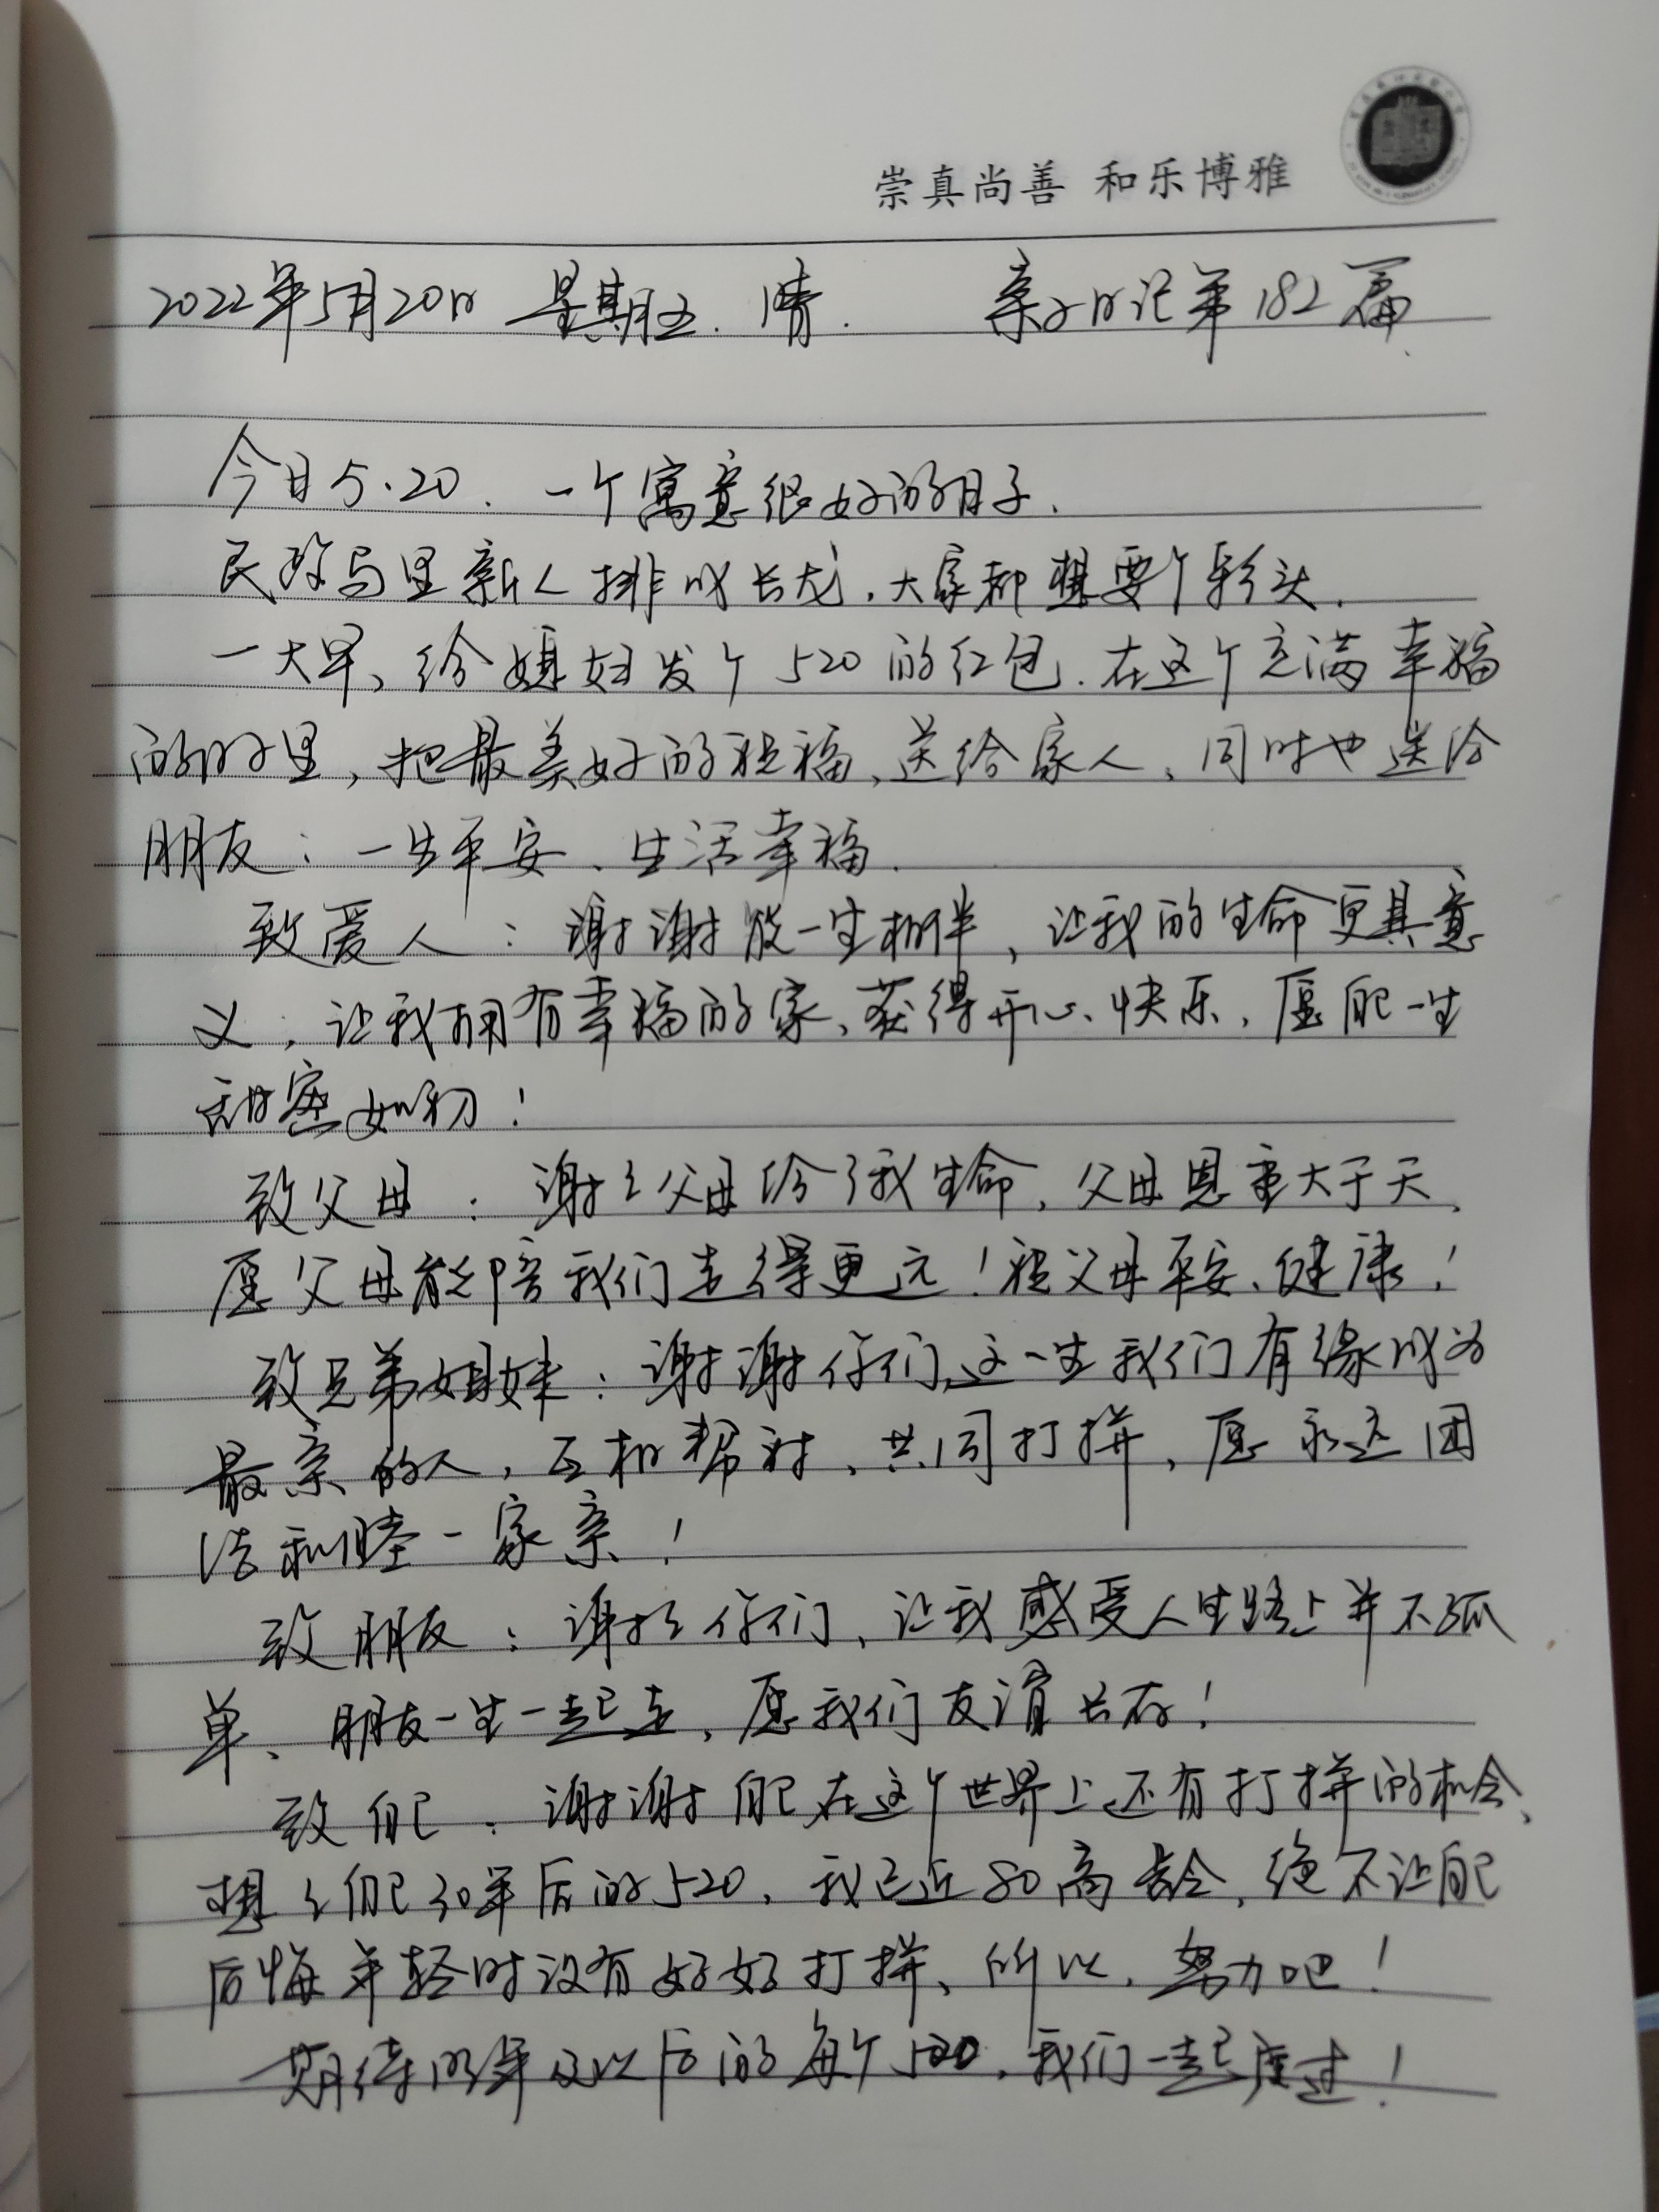 崇真尚善 和乐博雅
2022年5月20日 星期五. 晴. 亲子日记第182篇
今日5.20、一个寓意很好的日子.
民政局里新人排成长龙,大家都想要个彩头.
一大早、给媳妇发个520的红包.在这个充满幸福
的时里,把最美好的祝福、送给家人、同时也送给
朋友:一生平安、生活幸福.
致爱人:谢谢你一生相伴,让我的生命更具意
义,让我拥有幸福的家、获得开心、快乐,愿我们一生
甜蜜如初!
致父母:谢谢父母给了我生命,父母恩重大于天、
愿父母能陪我们走得更远!祝父母平安、健康!
致兄弟姐妹:谢谢你们,这一生我们有缘成为
最亲的人,互相帮衬、共同打拼,愿永远团
结和睦一家亲!
致朋友:谢谢你们,让我感受人生路上并不孤
单、朋友一生一起走,愿我们友谊长存!
致自己:谢谢自己在这个世界上还有打拼的机会、
想想自己30年后的520,我已近80高龄,绝不让自己
后悔年轻时没有好好打拼、所以,努力吧!
期待明年及以后的每个520,我们一起度过!